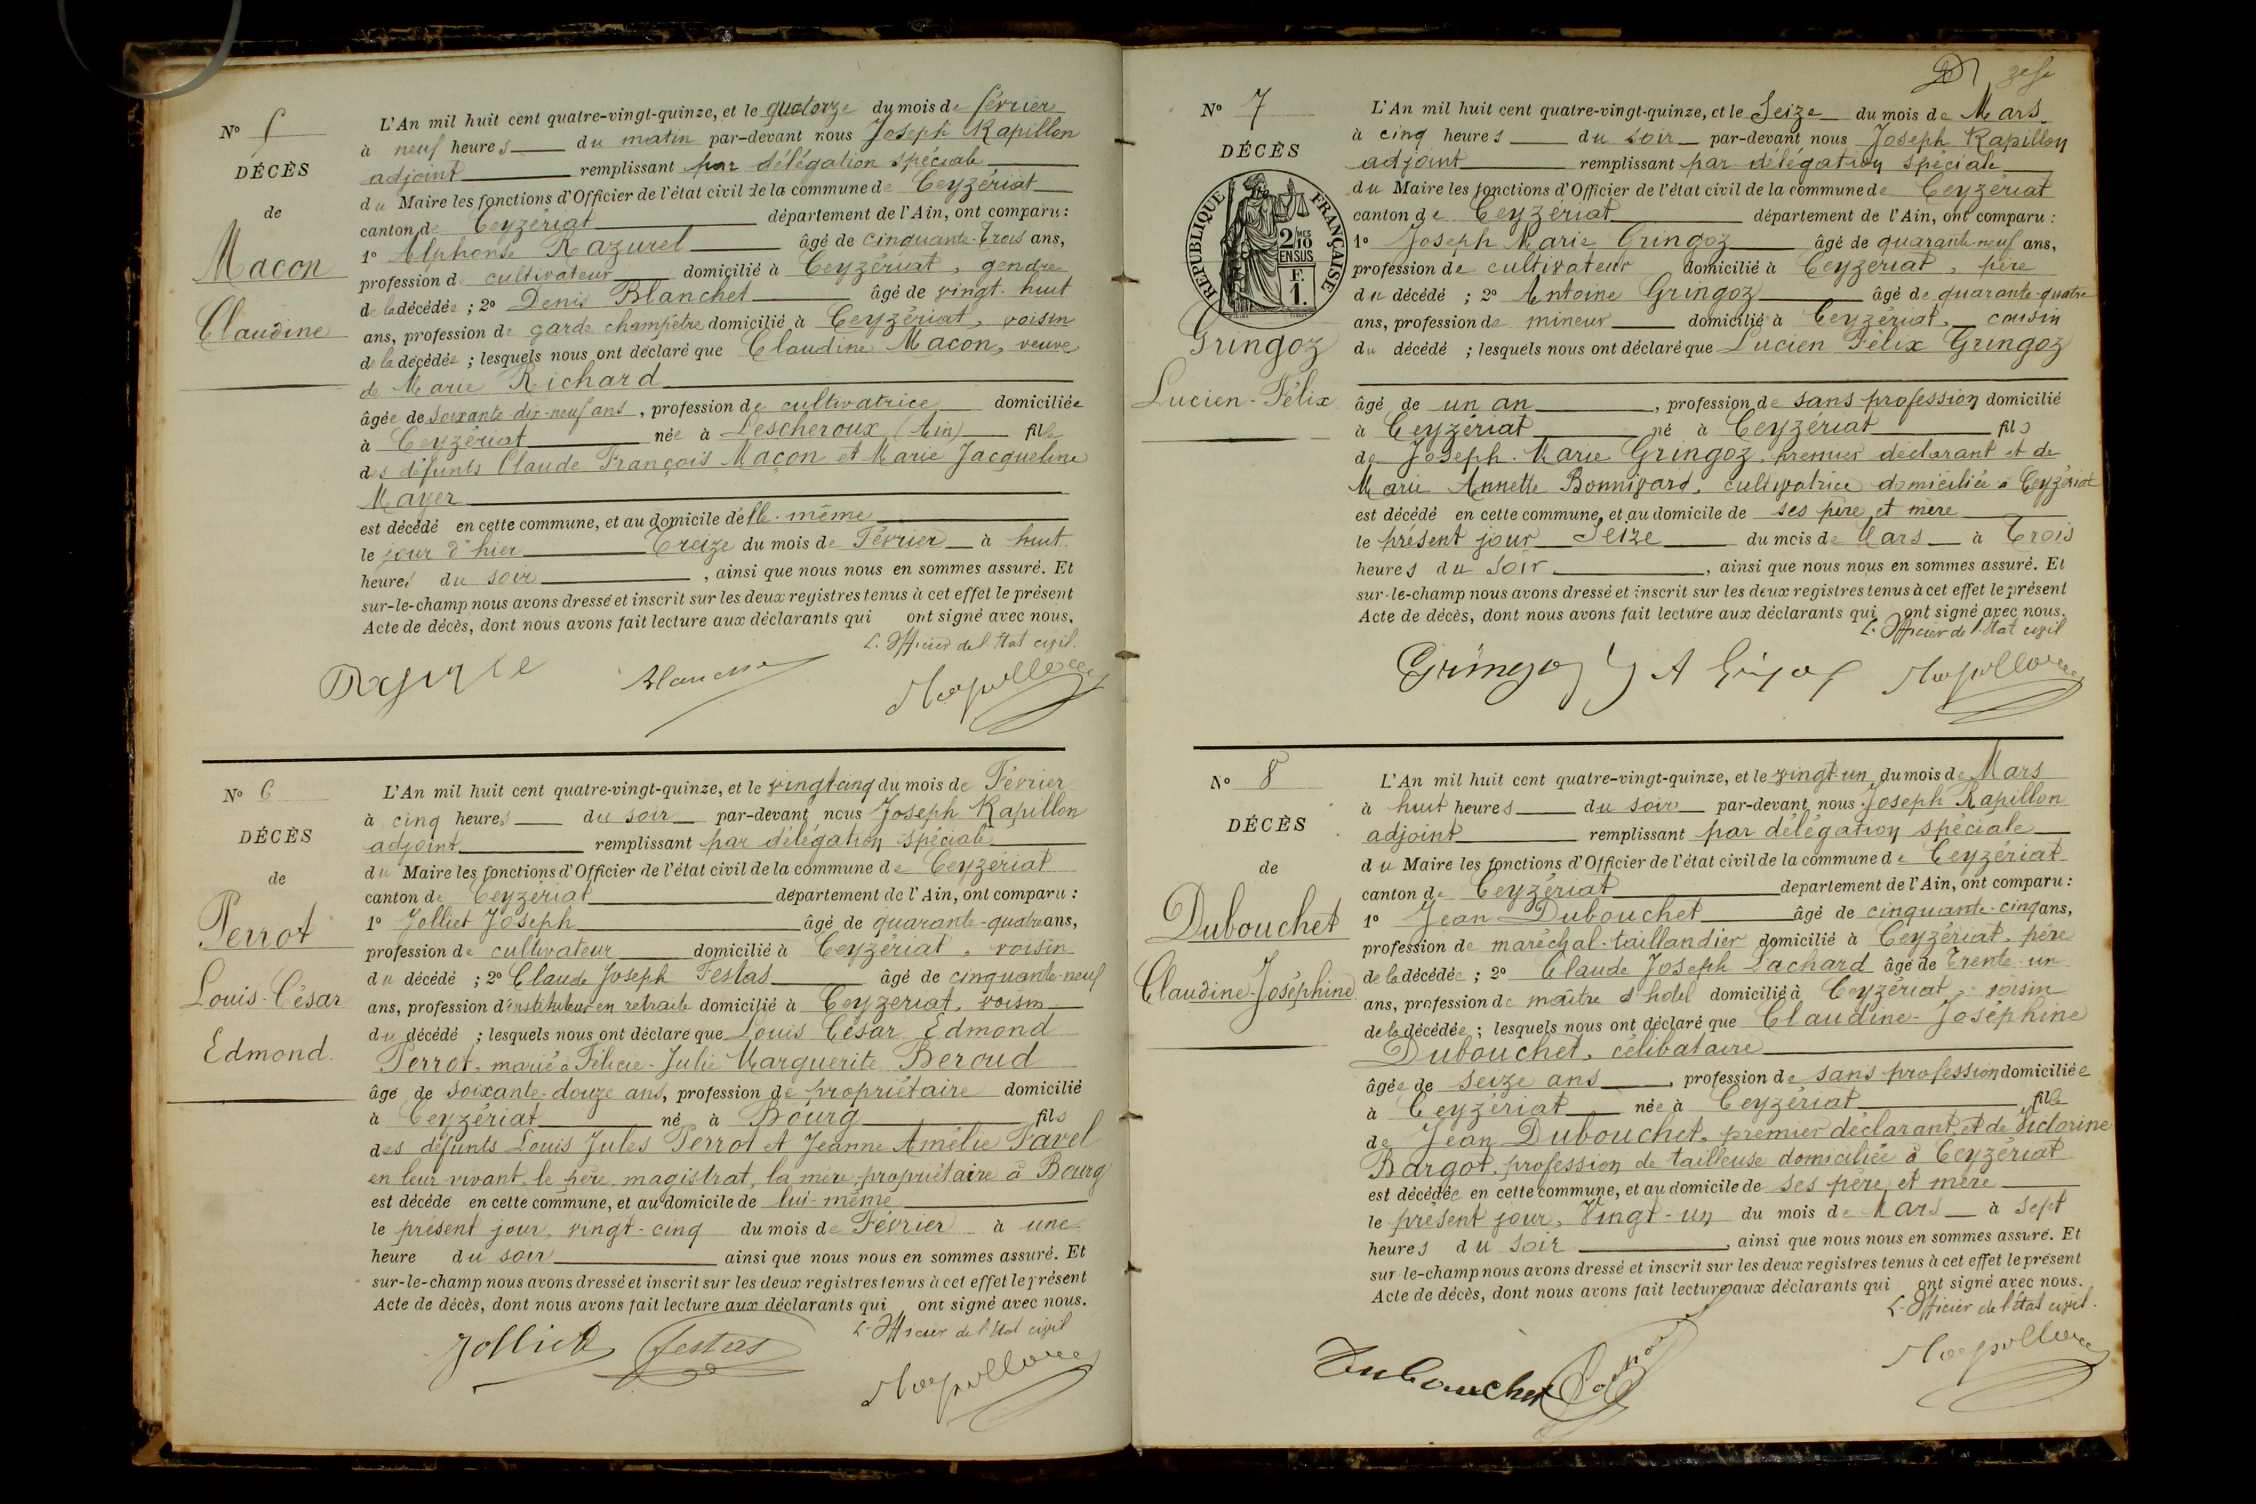 N° 5
DÉCÈS
de
Macon
Claudine
L'An mil huit cent quatre-vingt-quinze, et le quatorze du mois de février
à neuf heures du matin par-devant nous Joseph Rapillon
adjoint remplissant par délégation spéciale
du Maire les fonctions d'Officier de l'état civil de la commune de Ceyzériat
canton de Ceyzériat département de l'Ain, ont comparu :
1° Alphonse Razurel âgé de cinquante-trois ans,
profession de cultivateur domicilié à Ceyzériat, gendre
de la décédée ; 2° Denis Blanchet âgé de vingt-huit
ans, profession de garde champêtre domicilié à Ceyzériat, voisin
de la décédée ; lesquels nous ont déclaré que Claudine Macon, veuve
de Marie Richard
âgée de soixante-dix-neuf ans, profession de cultivatrice domiciliée
à Ceyzériat née à Lescheroux (Ain) fille
des défunts Claude François Maçon et Marie Jacqueline
Mayer
est décédé en cette commune, et au domicile d'elle-même
le jour d'hier Treize du mois de Février à huit
heures du soir, ainsi que nous nous en sommes assuré. Et
sur-le-champ nous avons dressé et inscrit sur les deux registres tenus à cet effet le présent
Acte de décès, dont nous avons fait lecture aux déclarants qui ont signé avec nous.
L. Officier de l'Etat civil.
Blanchet Rapillon
N° 6
DÉCÈS
de
Perrot
Louis-César
Edmond.
L'An mil huit cent quatre-vingt-quinze, et le vingt-cinq du mois de Février
à cinq heures du soir par-devant nous Joseph Rapillon
adjoint remplissant par délégation spéciale
du Maire les fonctions d'Officier de l'état civil de la commune de Ceyzériat
canton de Ceyzériat département de l'Ain, ont comparu :
1° Jolliet Joseph âgé de quarante-quatre ans,
profession de cultivateur domicilié à Ceyzériat, voisin
du décédé ; 2° Claude Joseph Festas âgé de cinquante-neuf
ans, profession d'instituteur en retraite domicilié à Ceyzériat, voisin
du décédé ; lesquels nous ont déclaré que Louis César Edmond
Perrot, marié à Félicie-Julie Marguerite Beroud
âgé de soixante-douze ans, profession de propriétaire domicilié
à Ceyzériat né à Bourg fils
des défunts Louis Jules Perrot et Jeanne Amélie Favel
en leur vivant, le père magistrat, la mère propriétaire à Bourg
est décédé en cette commune, et au domicile de lui-même
le présent jour, vingt-cinq du mois de Février à une
heure du soir ainsi que nous nous en sommes assuré. Et
sur-le-champ nous avons dressé et inscrit sur les deux registres tenus à cet effet le présent
Acte de décès, dont nous avons fait lecture aux déclarants qui ont signé avec nous.
L. Officier de l'Etat civil
Jolliet Festas Rapillon
N° 7
DÉCÈS
RÉPUBLIQUE FRANÇAISE
2/10 MES
EN SUS
F.
1.
Gringoz
Lucien-Félix
L'An mil huit cent quatre-vingt-quinze, et le Seize du mois de Mars
à cinq heures du soir par-devant nous Joseph Rapillon
adjoint remplissant par délégation spéciale
du Maire les fonctions d'Officier de l'état civil de la commune de Ceyzériat
canton de Ceyzériat département de l'Ain, ont comparu :
1° Joseph Marie Gringoz âgé de quarante-neuf ans,
profession de cultivateur domicilié à Ceyzériat, père
du décédé ; 2° Antoine Gringoz âgé de quarante-quatre
ans, profession de mineur domicilié à Ceyzériat, cousin
du décédé ; lesquels nous ont déclaré que Lucien Félix Gringoz
âgé de un an, profession de sans profession domicilié
à Ceyzériat né à Ceyzériat fils
de Joseph-Marie Gringoz, premier déclarant et de
Marie Annette Bonnivard, cultivatrice domiciliée à Ceyzériat
est décédé en cette commune, et au domicile de ses père et mère
le présent jour Seize du mois de Mars à Trois
heures du soir, ainsi que nous nous en sommes assuré. Et
sur-le-champ nous avons dressé et inscrit sur les deux registres tenus à cet effet le présent
Acte de décès, dont nous avons fait lecture aux déclarants qui ont signé avec nous.
L. Officier de l'Etat civil
Gringoz Rapillon
N° 8
DÉCÈS
de
Dubouchet
Claudine-Joséphine
L'An mil huit cent quatre-vingt-quinze, et le vingt-un du mois de Mars
à huit heures du soir par-devant nous Joseph Rapillon
adjoint remplissant par délégation spéciale
du Maire les fonctions d'Officier de l'état civil de la commune de Ceyzériat
canton de Ceyzériat département de l'Ain, ont comparu :
1° Jean Dubouchet âgé de cinquante-cinq ans,
profession de maréchal-taillandier domicilié à Ceyzériat, père
de la décédée ; 2° Claude Joseph Lachard âgé de Trente-un
ans, profession de maître d'hotel domicilié à Ceyzériat, voisin
de la décédée ; lesquels nous ont déclaré que Claudine-Joséphine
Dubouchet, célibataire
âgée de seize ans, profession de sans profession domiciliée
à Ceyzériat née à Ceyzériat fille
de Jean Dubouchet, premier déclarant et de Victorine
Bargot, profession de tailleuse domiciliée à Ceyzériat
est décédée en cette commune, et au domicile de ses père et mère
le présent jour, Vingt-un du mois de Mars à sept
heures du soir, ainsi que nous nous en sommes assuré. Et
sur-le-champ nous avons dressé et inscrit sur les deux registres tenus à cet effet le présent
Acte de décès, dont nous avons fait lecture aux déclarants qui ont signé avec nous.
L. Officier de l'Etat civil.
Dubouchet Rapillon